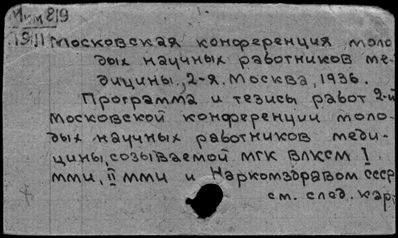 819
1911 Московская конференция моло-
дых научных работников ме-
дицины, 2-я. Москва, 1936.
Программа и тезисы работ 2-й
Московской конференции моло-
дых научных работников меди-
цины, созываемой МГК ВЛКСМ I
ММИ, II ММИ и Наркомздравом СССР
см. след. карт